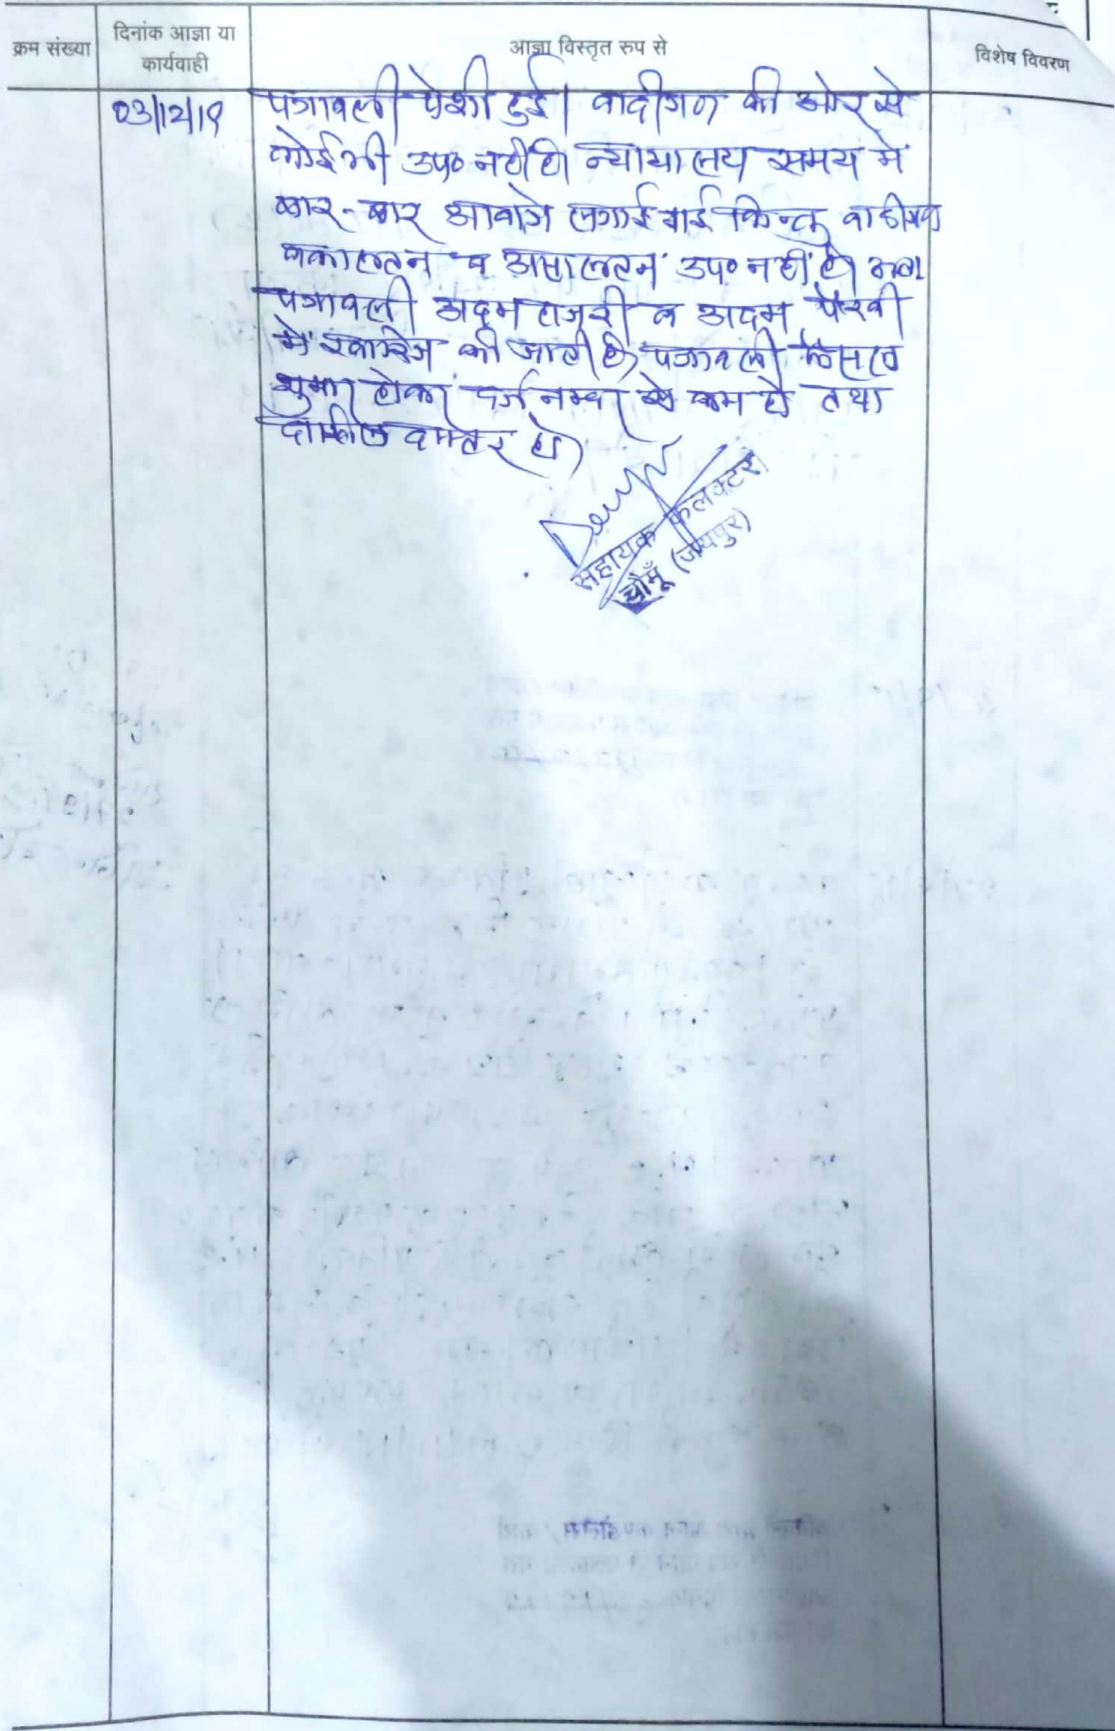 क्रम संख्या
दिनांक आज्ञा या
कार्यवाही
आज्ञा विस्तृत रुप से
विशेष विवरण
03/12/19
पत्रावली पेश हुई। वादीगण की ओर से
कोई भी उप० नहीं है। न्यायालय समय में
बार-बार आवाजे लगाई गई किन्तु वादीगण
वकालतन व असालतन उप० नहीं है। अतः
पत्रावली अदम हाजरी व अदम पैरवी
में खारिज की जाती है, पत्रावली फैसल
शुमार होकर दर्ज नम्बर से कम हो तथा
दाखिल दफ्तर हो।
सहायक कलक्टर
चौमूँ (जयपुर)